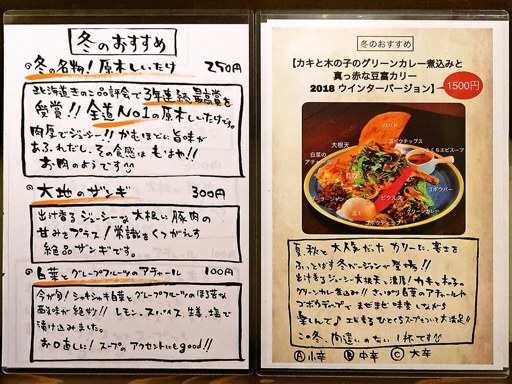 冬のおすすめ
冬の名物！原木しいたけ 250円
北海道きのこ品評会で3年連続最高賞を
受賞!! 全道No1の原木しいたけです。
肉厚でジューシー!! かむほどに旨味が
あふれだし、その食感はもはや!!
お肉のようです
大地のザンギ 300円
出汁香るジューシーな大根に豚肉の
甘みをプラス！常識をくつがえす
絶品ザンギです。
白菜とグレープフルーツのアチャール 100円
今が旬！シャキシャキ白菜とグレープフルーツのほろ苦な
酸味が絶妙!! レモン、スパイス、生姜、塩で
漬け込みました。
お口直しに！スープのアクセントにもgood!!
冬のおすすめ
【カキと木の子のグリーンカレー煮込みと
真っ赤な豆富カリー
2018 ウインターバージョン】
1500円
パパド
ゴボウチップス
大根天
ひとくちエビスープ
白菜の
アチャール
ゴボウバー
ピクルス
グリーンカレー
夏、秋と大好評だったカリーに、寒さを
ふっとばす冬バージョンが登場!!
出汁香るジューシー大根天と濃厚！カキと木の子の
グリーンカレー煮込み!! さっぱり白菜のアチャールや
ゴボウチップで まぜまぜ味変しながら
楽しんで♪ エビ香るひとくちスープもついて大満足!!
この冬、間違いのない1杯です
Ⓐ小辛 Ⓑ中辛 Ⓒ大辛